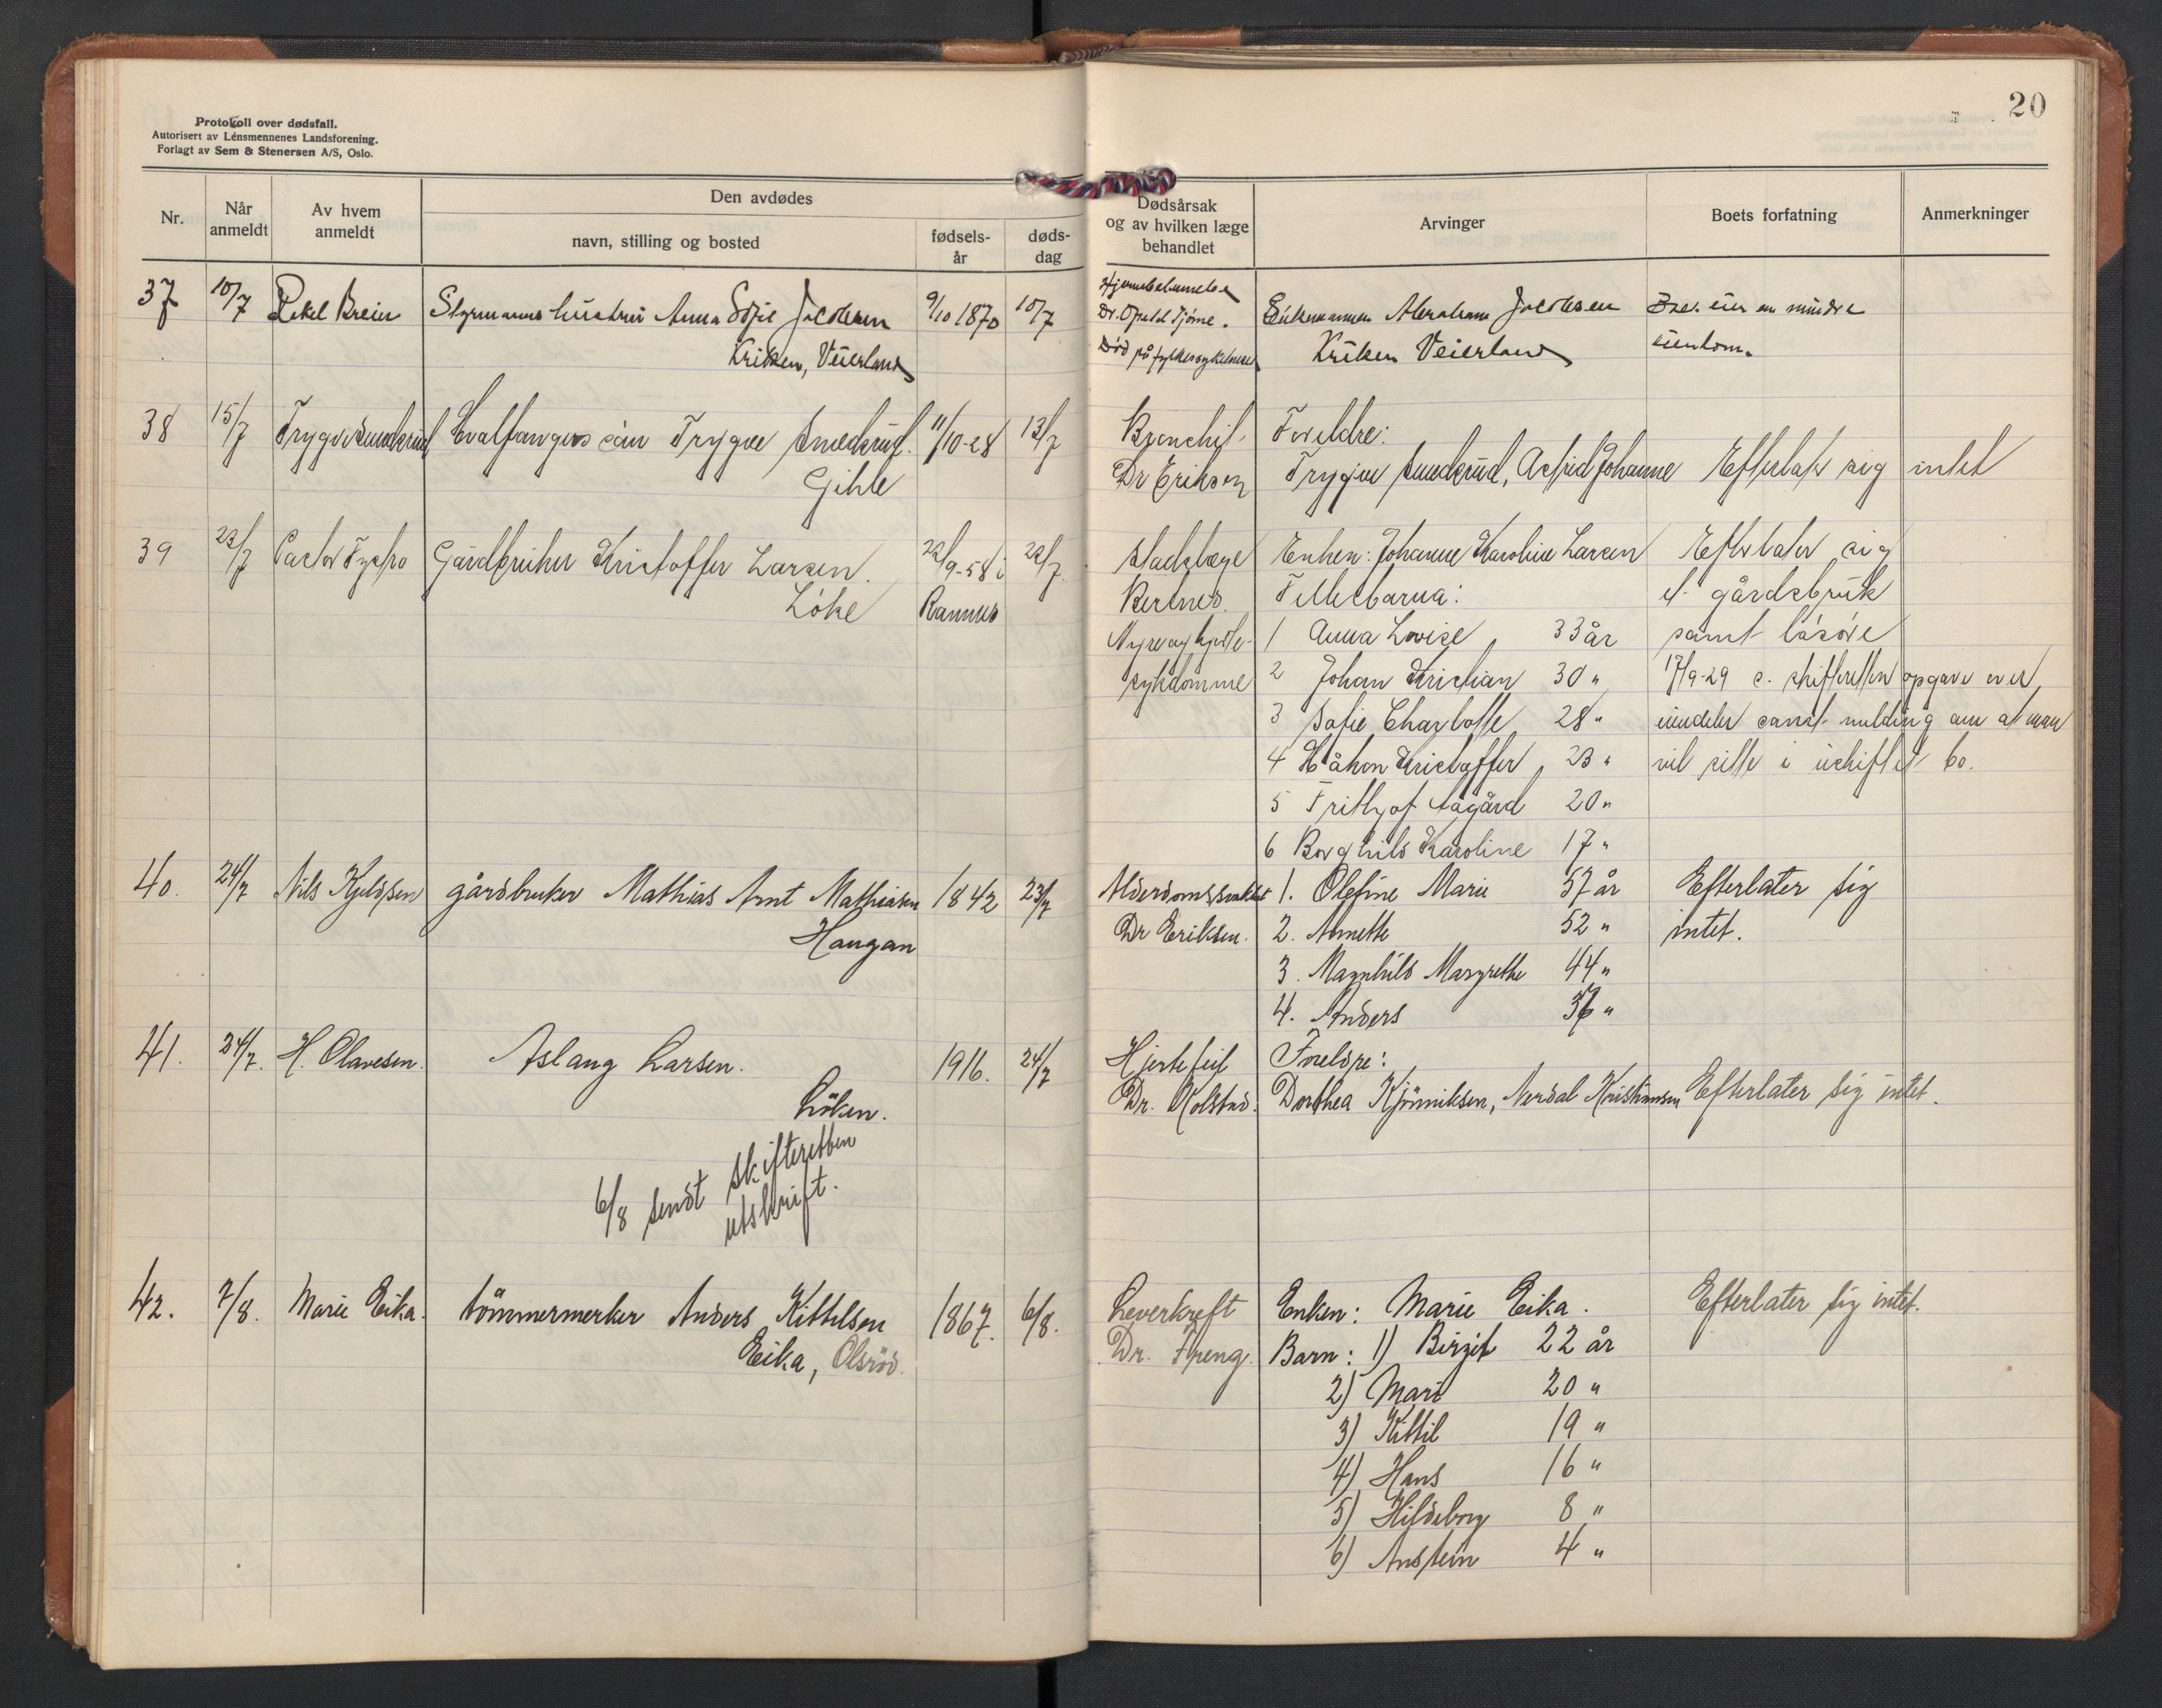 20
Protokoll over dødsfall.
Autorisert av Lensmennenes Landsforening.
Forlagt av Sem & Stenersen A/S, Oslo.
Nr.
Når anmeldt
Av hvem anmeldt
Den avdødes
navn, stilling og bosted
fødsels-år
døds-dag
Dødsårsak og av hvilken læge behandlet
Arvinger
Boets forfatning
Anmerkninger
37 10/7 Rakel Breier Styrmanns hustru Anna Sofie Jacobsen 9/10 1870 10/7
Kriken, Veierland
Dr. Tjøme.
Død på fylkessykehuset
Enkemannen Abraham Jacobsen
Kriken Veierland
eier en mindre
eiendom.
38 15/7 Trygve Smedsrud Hvalfangers søn Trygve Smedsrud. 11/10-28 13/7
Gihle
Bronchit.
Dr Eriksen
Foreldre:
Trygve Smedsrud, Astrid Johanne Efterlater sig intet
39 23/7 Pastor Gårdbruker Kristoffer Larsen. 22/9-58 i 22/7
Løke Ramnes
Stadslæge
Bertnes.
Nyre og hjerte-
sykdomme
Enken: Johanne Karoline Larsen Efterlater sig
Fellesbarna: et gårdsbruk
1 Anna Lovise 33 år samt løsøre
2 Johan Kristian 30 " 17/9-29 s. skifteretten opgave over
3 Sofie Charlotte 28 " eiendeler samt melding om at man
4 Håkon Kristoffer 23 " vil sitte i uskiftet bo.
5 Frithjof Aagård 20 "
6 Borghild Karoline 17 "
40. 24/7 Nils Kjeldsen gårdbruker Mathias Arnt Mathiasen 1842 23/7
Haugan
Alderdomssvakhet
Dr Eriksen.
1. Olefine Marie 57 år Efterlater sig
2. Annette 52 " intet.
3. Magnhild Margrethe 44 "
4. Anders "
41. 24/7. H. Olavesen. Aslaug Larsen. 1916. 24/7
Løken.
6/8 sendt skifteretten
utskrift.
Hjertefeil
Dr. Kolstad.
Foreldre:
Dorthea Kjønniksen, Nerdal Kristiansen Efterlater sig intet.
42. 7/8. Marie Eika. tømmermerker Anders Kittelsen 1867. 6/8.
Eika, Olsrød.
Leverkreft
Dr. Speng.
Enken: Marie Eika. Efterlater sig intet.
Barn: 1) Birgit 22 år
2) Mari 20 "
3) Kittil 19 "
4) Hans 16 "
5) Hildeborg 8 "
6) Anstein 4 "